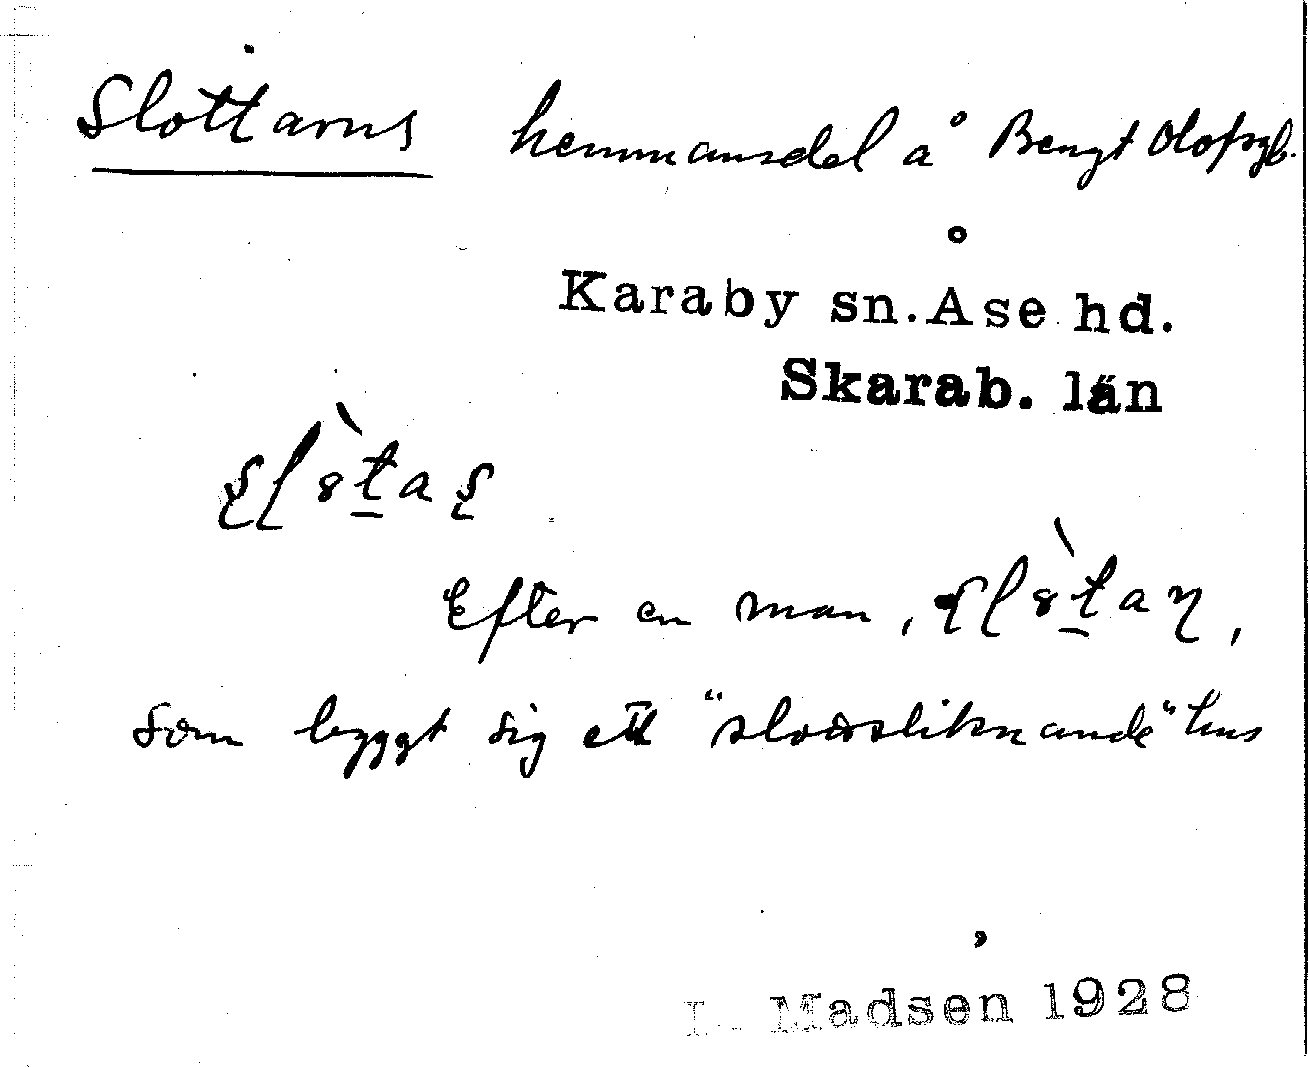 Slottarns hemmansdel å Bengt Olofsgb.
Karaby sn. Åse hd.
Skarab. län
Efter en man,
som byggt sig ett "slottsliknande" hus
I. Madsen 1928